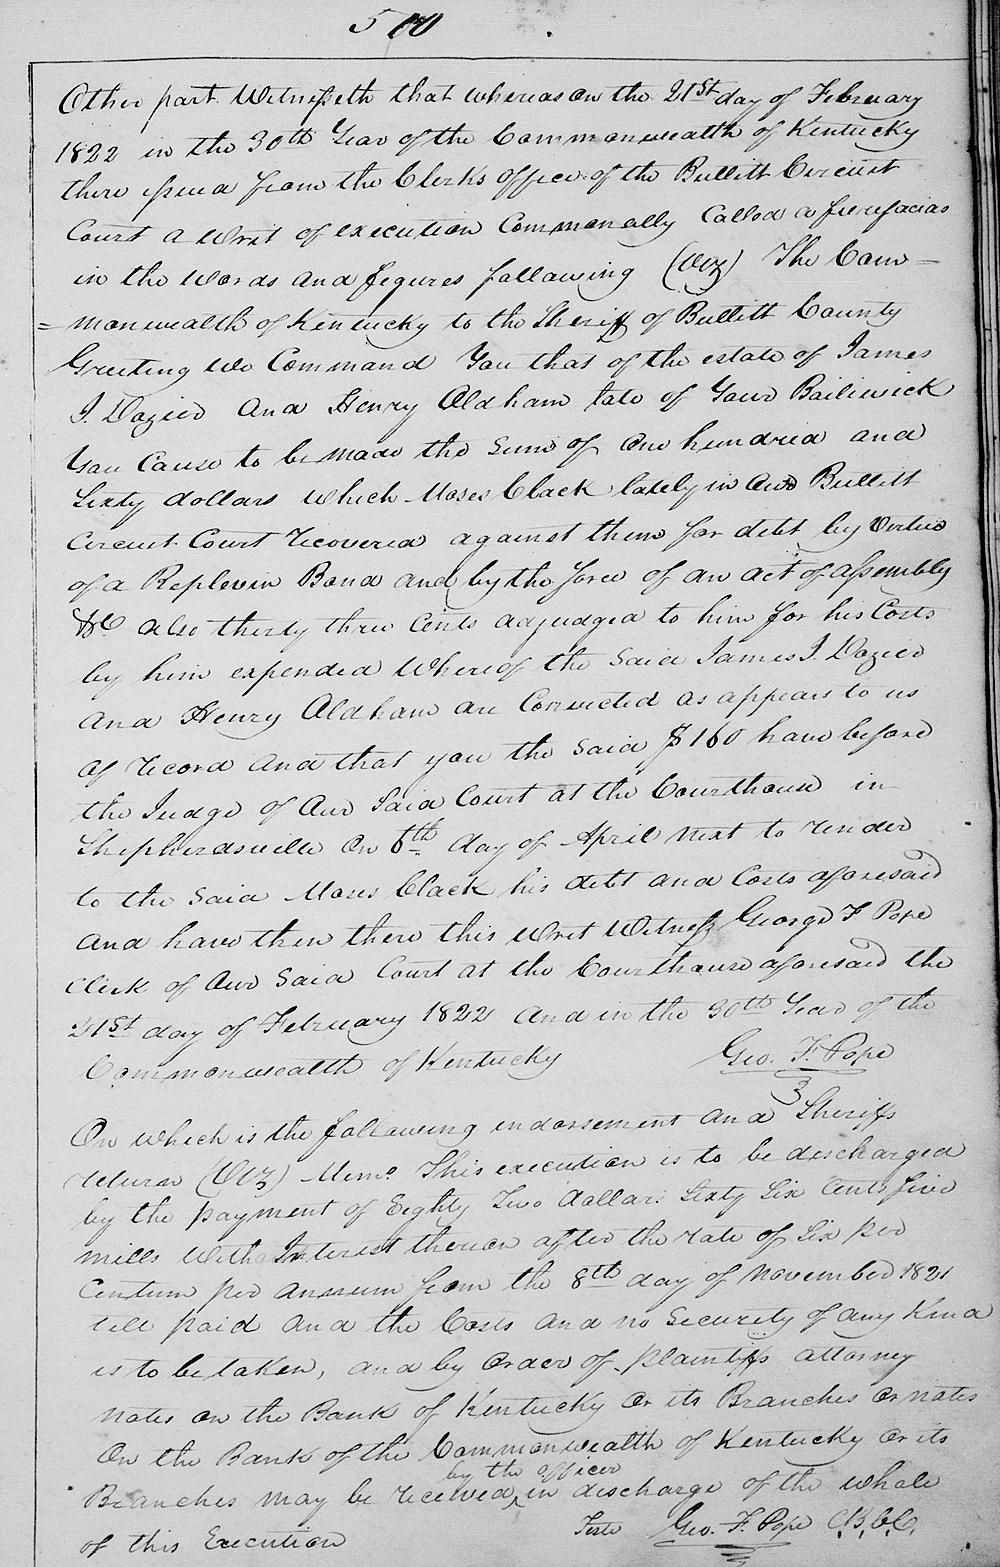 500
Other part Witnesseth that whereas on the 21st day of February
1822 in the 30th Year of the Commonwealth of Kentucky
there issued from the Clerks office of the Bullitt Circuit
Court a Writ of execution Commonally Called a fierefacias
in the Words and figures following (Viz) The Com-
=monwealth of Kentucky to the Sheriff of Bullitt County
Greeting We Command You that of the estate of James
J. Dozier And Henry Oldham late of Your Bailiwick
You Cause to be made the Sum of One hundred and
Sixty dollars which Moses Clack lately in Our Bullitt
Circuit Court recovered against them for debt by Virtue
of a Replevin Bond and by the force of an act of assembly
&C also thirty three Cents adjudged to him for his Costs
by him expended Whereof the said James J. Dozier
And Henry Oldham are Convicted as appears to us
of record And that you the said $160 have before
the Judge of Our Said Court at the Courthouse in
Shepherdsville On 6th day of April next to render
to the said Moses Clack his debt and Costs aforesaid
And have then there this Writ Witness George F Pope
Clerk of Our Said Court at the Courthouse aforesaid the
21st day of February 1822 And in the 30th Year of the
Commonwealth of Kentucky Geo. F. Pope
On which is the following endorsement And Sheriffs
return (Viz) Memo. This execution is to be discharged
by the payment of Eighty Two dollars Sixty Six Cents five
mills With Interest thereon after the rate of Six per
Centum per Annum from the 8th day of November 1821
till paid And the Costs And no Security of any Kind
is to be taken, and by Order of plaintiffs attorney
notes on the Bank of Kentucky Or its Branches Or notes
On the Bank of the Commonwealth of Kentucky Or its
by the officer
Branches may be received ‸ in discharge of the whole
of this Execution Teste Geo. F. Pope C.B.C.C.